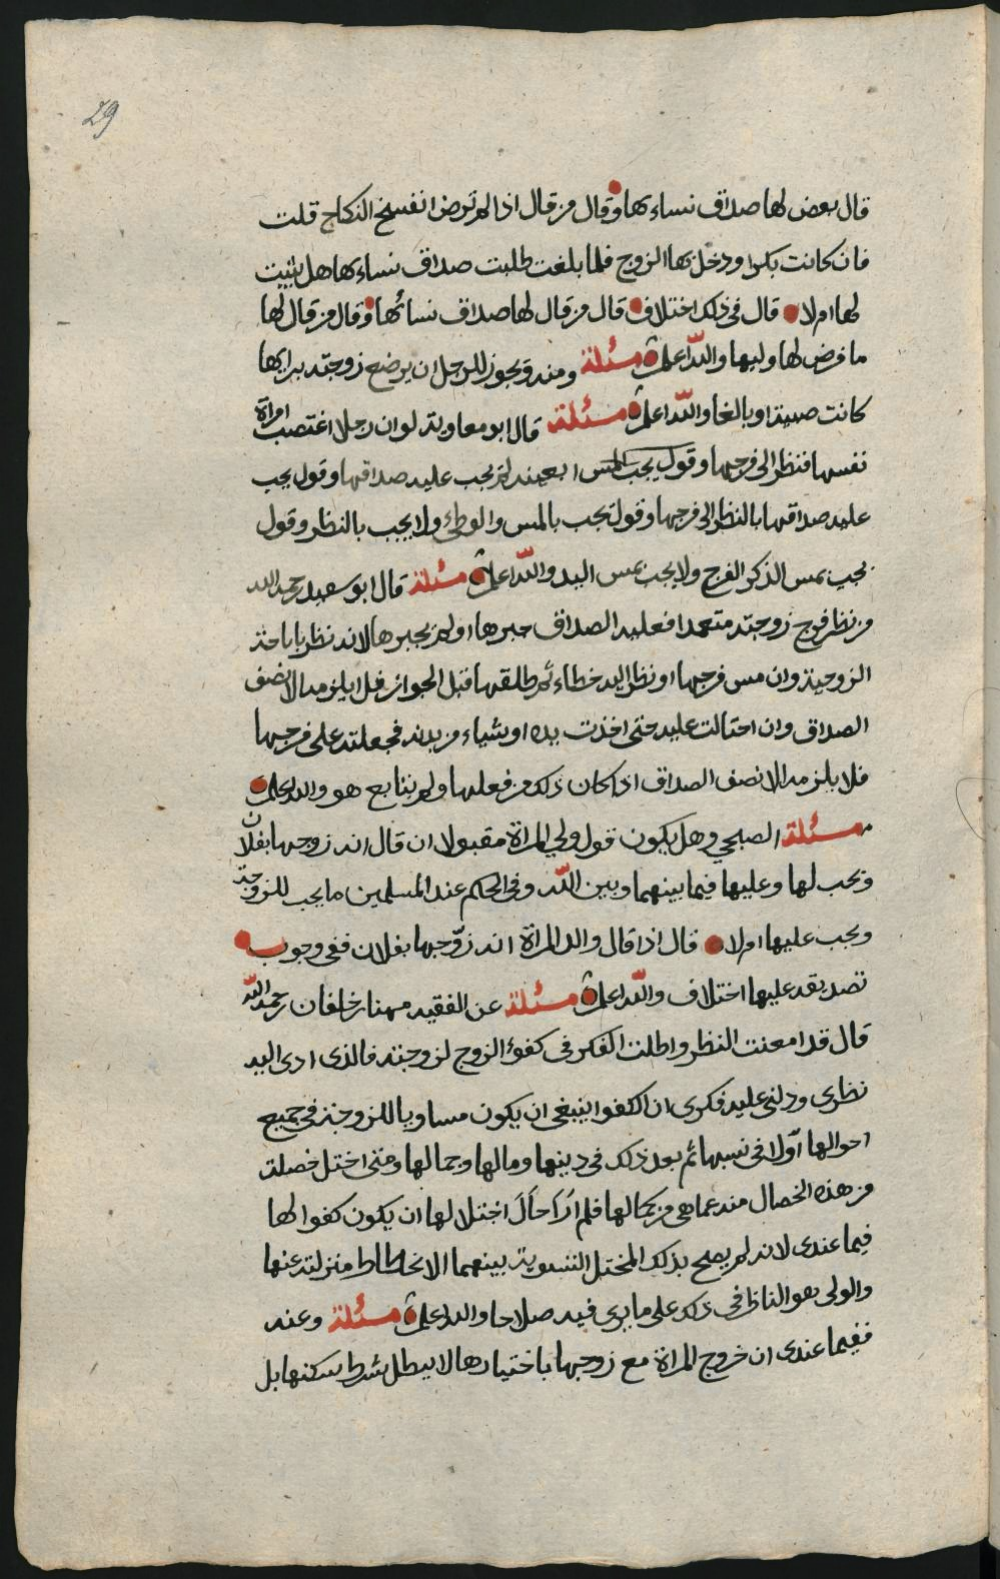 29
قال بعض لها صداق نساءها وقال من قال اذا لم ترض انفسخ النكاح قلت
فان كانت بكرا ودخل بها الزوج فلما بلغت طلبت صداق نساءها هل يثبت
لها ام لا قال في ذلك اختلاف قال من قال لها صداق نسائها وقال من قال لها
ما فرض لها وليها والله اعلم مسئلة ومنه ويجوز للرجل ان يرضع زوجته
كانت صبية او بالغا والله اعلم مسئلة قال ابو معاوية لو ان رجلا اغتصب امراة
نفسها فنظر الى فرجها وقول يجب المس بعينه لم يجب عليه صداقها وقول يجب
عليه صداقها بالنظر الى فرجها وقول يجب بالمس والوطئ ولا يجب بالنظر وقول
يجب بمس الذكر الفرج ولا يجب بمس اليد والله اعلم مسئلة قال ابو سعيد رحمه الله
من نظر فرج زوجته متعمدا فعليه الصداق جبرها او لم يجبرها لانه نظر باباحة
الزوجية وان مس فرجها او نظر اليه خطاء ثم طلقها قبل الجواز فلا يلزمه الا نصف
الصداق وان احتالت عليه حتى اخذت يده او شياء من بدنه فجعلته على فرجها
فلا يلزمه الا نصف الصداق اذا كان ذلك من فعلها ولم يتابع هو والله اعلم
مسئلة الصبحي وهل يكون قول ولي المراة مقبولا ان قال انه زوجها بفلان
ويجب لها وعليها فيما بينهما وبين الله وفي الحكم عند المسلمين ما يجب للزوجة
ويجب عليها ام لا قال اذا قال والد المراة انه زوّجها بفلان ففي وجوب
تصديقه عليها اختلاف والله اعلم مسئلة عن الفقيه مهنا بن خلفان رحمه الله
قال قد امعنت النظر واطلت الفكر في كفؤ الزوج لزوجته فالذى ادى اليه
نظرى ودلنى عليه فكرى ان الكفوا ينبغى ان يكون مساويا للزوجة في جميع
احوالها اوّلا في نسبها ثم بعد ذلك في دينها ومالها وجمالها ومتى اختل خصلة
من هذه الخصال منه عما هى من كمالها فلم ار احال اختلالها ان يكون كفوا لها
فيما عندى لانه لم يصح بذلك المختل التسوية بينهما الا نحطاط منزلته عنها
والولى هو الناظر في ذلك على ما يرى فيه صلاحا والله اعلم مسئلة وعنه
ففيما عندى ان خروج المراة مع زوجها باختيارها لا يبطل شرط سكنها بل